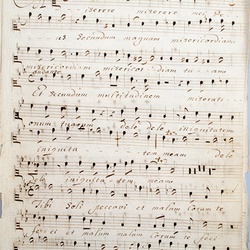 iserere miserere mei
us Secundum magnam misericordiam
misericordiam misericordiam tuam
Et Secundum multitudinem miserati
onum tuarum dele dele iniquitatem
iniquita tem meam dele
dele iniquita tem meam
Tibi Soli peccavi et malum coram te
feci et malum malum coram te feci